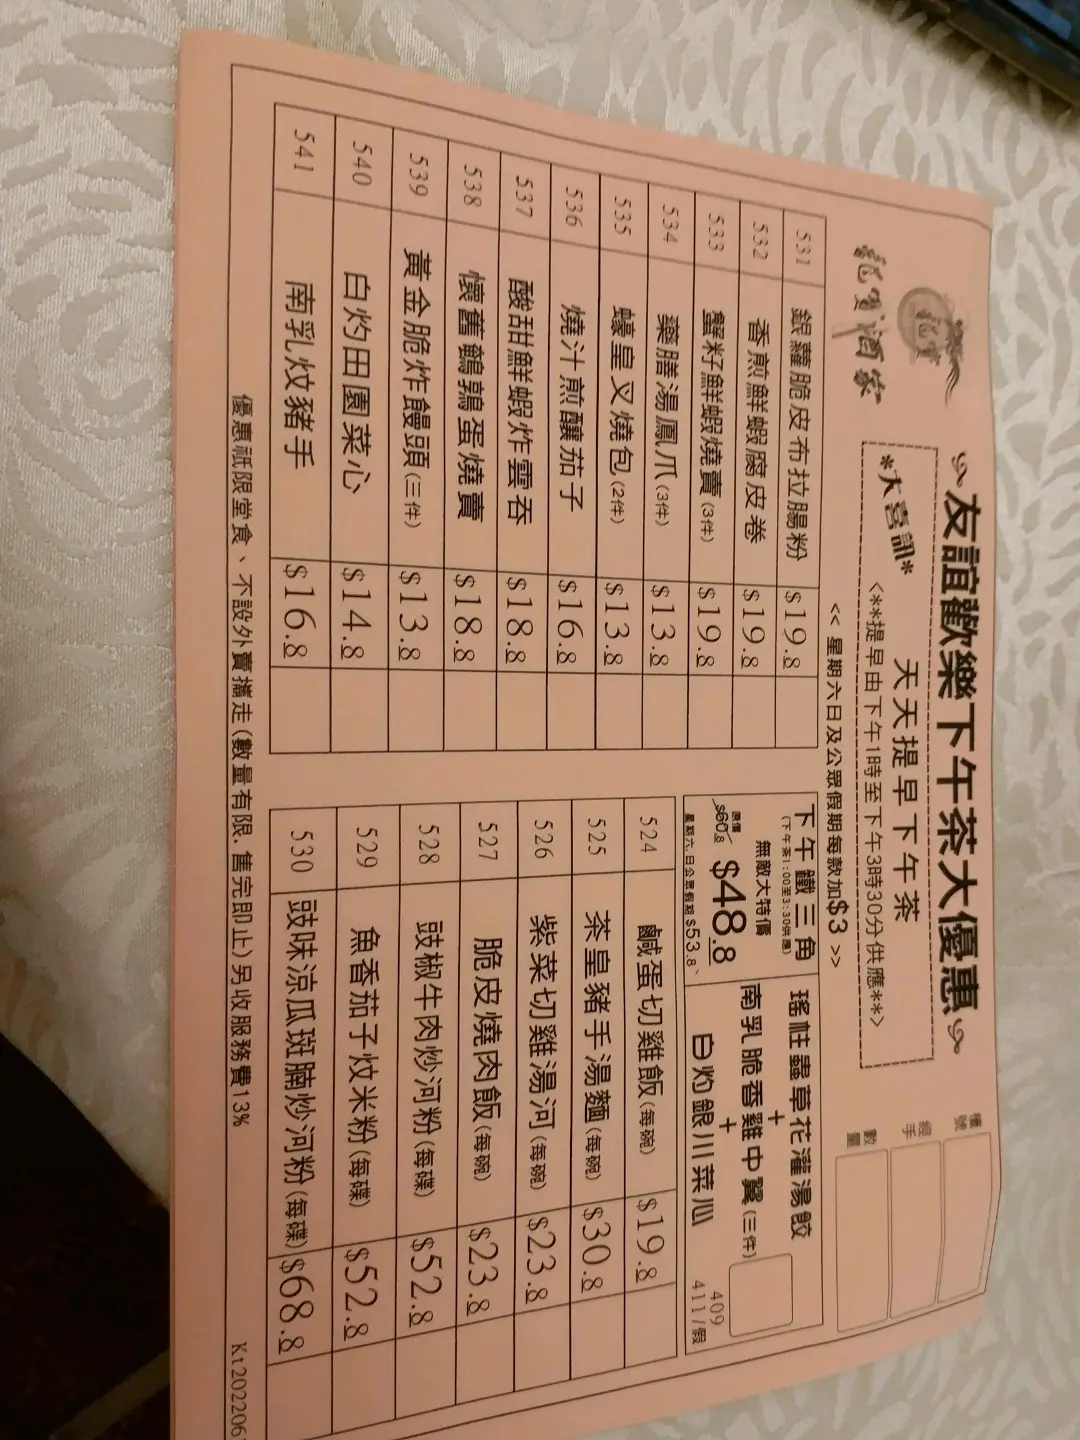 龍寶酒家
友誼歡樂下午茶大優惠
*大喜訊*
天天提早下午茶
<**提早由下午1時至下午3時30分供應**>
<< 星期六日及公眾假期每款加$3 >>
檯號
經手
數量
531 銀蘿脆皮布拉腸粉 $19.8
532 香煎鮮蝦腐皮卷 $19.8
533 蟹籽鮮蝦燒賣(3件) $19.8
534 藥膳湯鳳爪(3件) $13.8
535 蠔皇叉燒包(2件) $13.8
536 燒汁煎釀茄子 $16.8
537 酸甜鮮蝦炸雲吞 $18.8
538 懷舊鵪鶉蛋燒賣 $18.8
539 黃金脆炸饅頭(三件) $13.8
540 白灼田園菜心 $14.8
541 南乳炆豬手 $16.8
下午鐵三角
(下午茶1:00至3:30供應)
無敵大特價
原價
$60.8 $48.8
星期六.日公眾假期$53.8、
瑤柱蟲草花灌湯餃
+
南乳脆香雞中翼(三件)
+
白灼銀川菜心
409
411/假
524 鹹蛋切雞飯(每碗) $19.8
525 茶皇豬手湯麵(每碗) $30.8
526 紫菜切雞湯河(每碗) $23.8
527 脆皮燒肉飯(每碗) $23.8
528 豉椒牛肉炒河粉(每碟) $52.8
529 魚香茄子炆米粉(每碟) $52.8
530 豉味涼瓜斑腩炒河粉(每碟) $68.8
優惠祇限堂食、不設外賣攜走(數量有限.售完即止)另收服務費13%
Kt202206